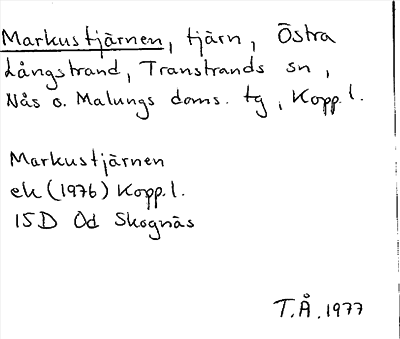 Markustjärnen, tjärn, Östra
Långstrand, Transtrands sn,
Nås o. Malungs doms. tg, Kopp.l.
Markustjärnen
ek (1976) Kopp.l.
15D 0d Skognäs
T.Å. 1977